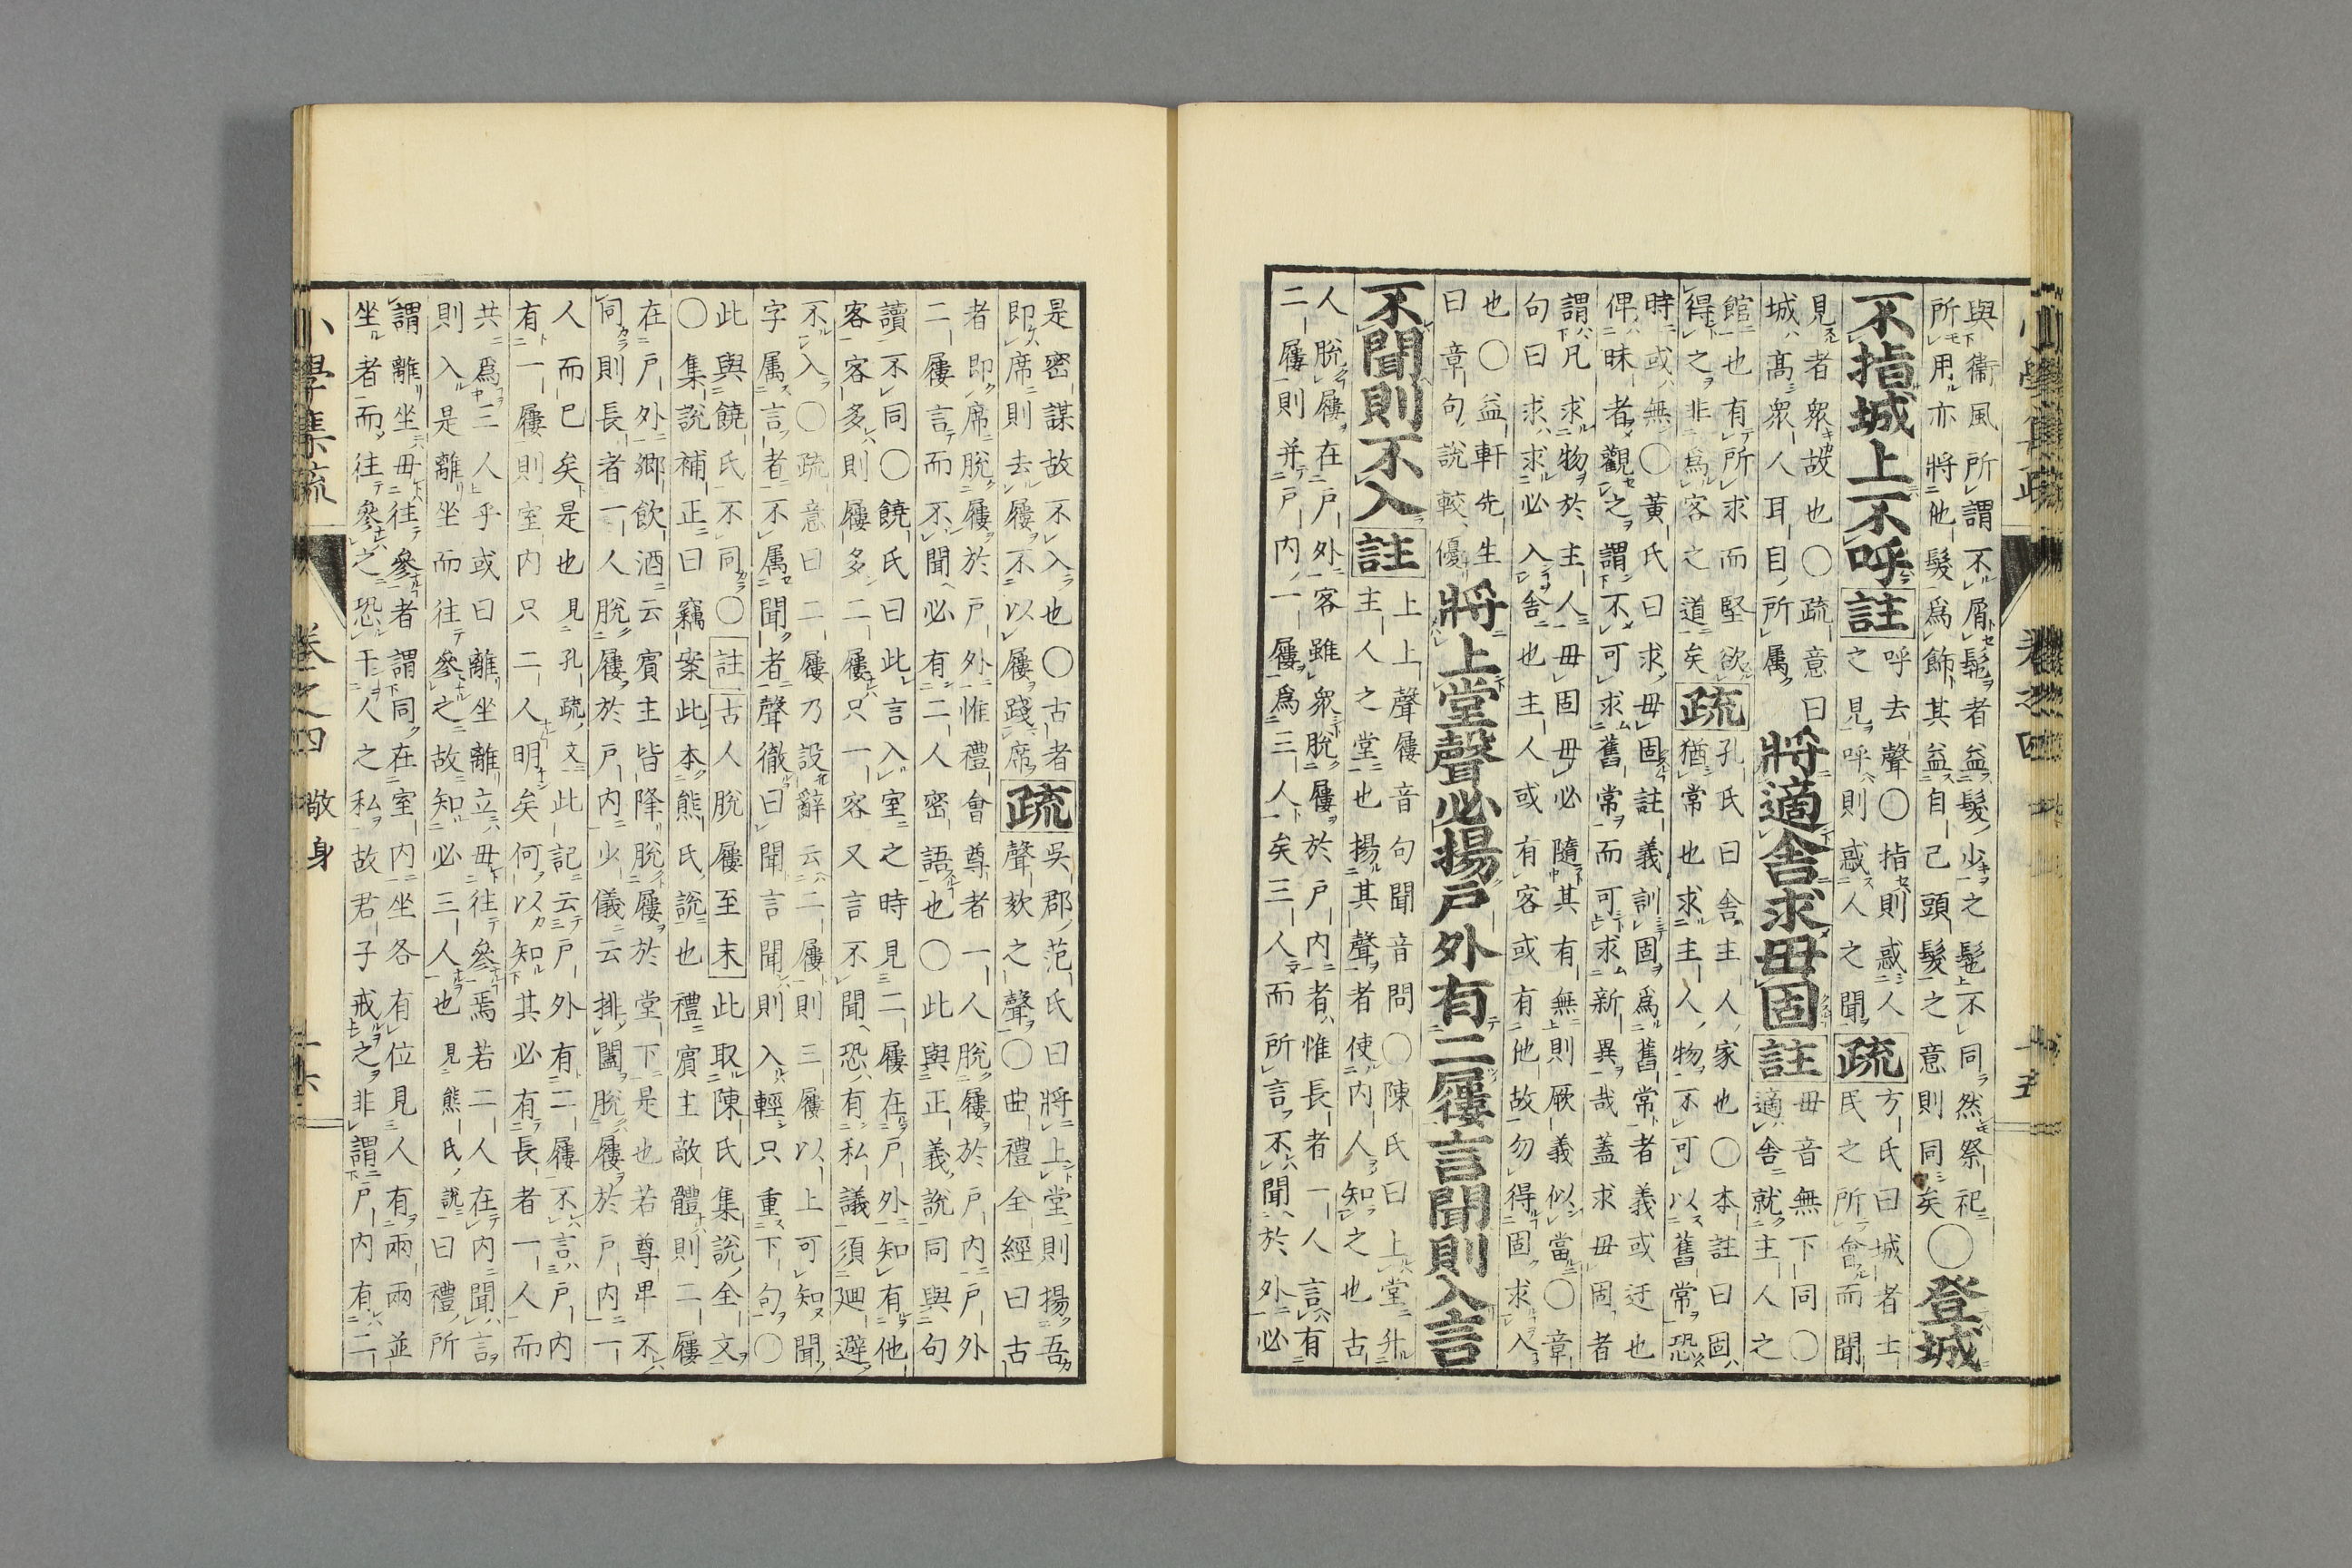 與衞風所謂不屑髢者益髮少之髢不同然祭祀
所用亦將他髮爲飾其益自己頭髮之意則同矣〇登城
不指城上不呼註呼去聲〇指則惑人
之見呼則惑人之聞疏方氏曰城者士
民之所會而聞
見者衆故也〇疏意曰
城高衆人耳目所属
將適舍求毋固註毋音無下同〇
適舍就主人之
館也有所求而堅欲
得之非爲客之道矣疏孔氏曰舍主人家也〇本註曰固
猶常也求主人物不可以舊常恐
時或無〇黃氏曰求毋固註義訓固爲舊常者義或迂也
俾昧者觀之謂不可求舊常而可求新異哉蓋求毋固者
謂凡求物於主人毋固毋必隨其有無則厥義似當〇章
句曰求求必入舍也主人或有客或有他故勿得固求入
也〇益軒先生
曰章句說較優將上堂聲必揚戶外有二屨言聞則入言
不聞則不入註上上聲屨音句聞音問〇陳氏曰上堂升
主人之堂也揚其聲者使內人知之也古
人脫屨在戶外客雖衆脫屨於戶內者惟長者一人言有
二屨則并戶內一屨爲三人矣三人而所言不聞於外必
是密謀故不入也〇古者
即席則去屨不以屨踐席疏吳郡范氏曰將上堂則揚吾
聲欬之聲〇曲禮全經曰古
者即席脫屨於戶外惟禮會尊者一人脫屨於戶內戶外
二屨言而不聞必有二人密語也〇此與正義說同與句
讀不同〇饒氏曰此言入室之時見二屨在戶外知有他
客客多則屨多二屨只一客又言不聞恐有私議須廻避
不入〇疏意曰二屨乃設辭云二屨則三屨以上可知聞
字属言者不属聞者聲徹曰聞言聞則入輕只重下句〇
此與饒氏不同〇註古人脫屨至末此取陳氏集說全文
〇集說補正曰竊案此本熊氏說也禮賓主敵體則二屨
在戶外鄕飲酒云賓主皆降脫屨於堂下是也若尊卑不
同則長者一人脫屨於戶內少儀云排闔脫屨於戶內一
人而已矣是也見孔疏文此記云戶外有二屨不言戶內
有一屨則室內只二人明矣何以知其必有長者一人而
共爲三人乎或曰離坐離立毋往參焉若二人在內聞言
則入是離坐而往參之故知必三人也見熊氏說曰禮所
謂離坐毋往參者謂同在室內坐各有位見人有兩兩並
坐者而往參之恐干人之私故君子戒之非謂戶內有二
小學集疏 卷之四 敬身